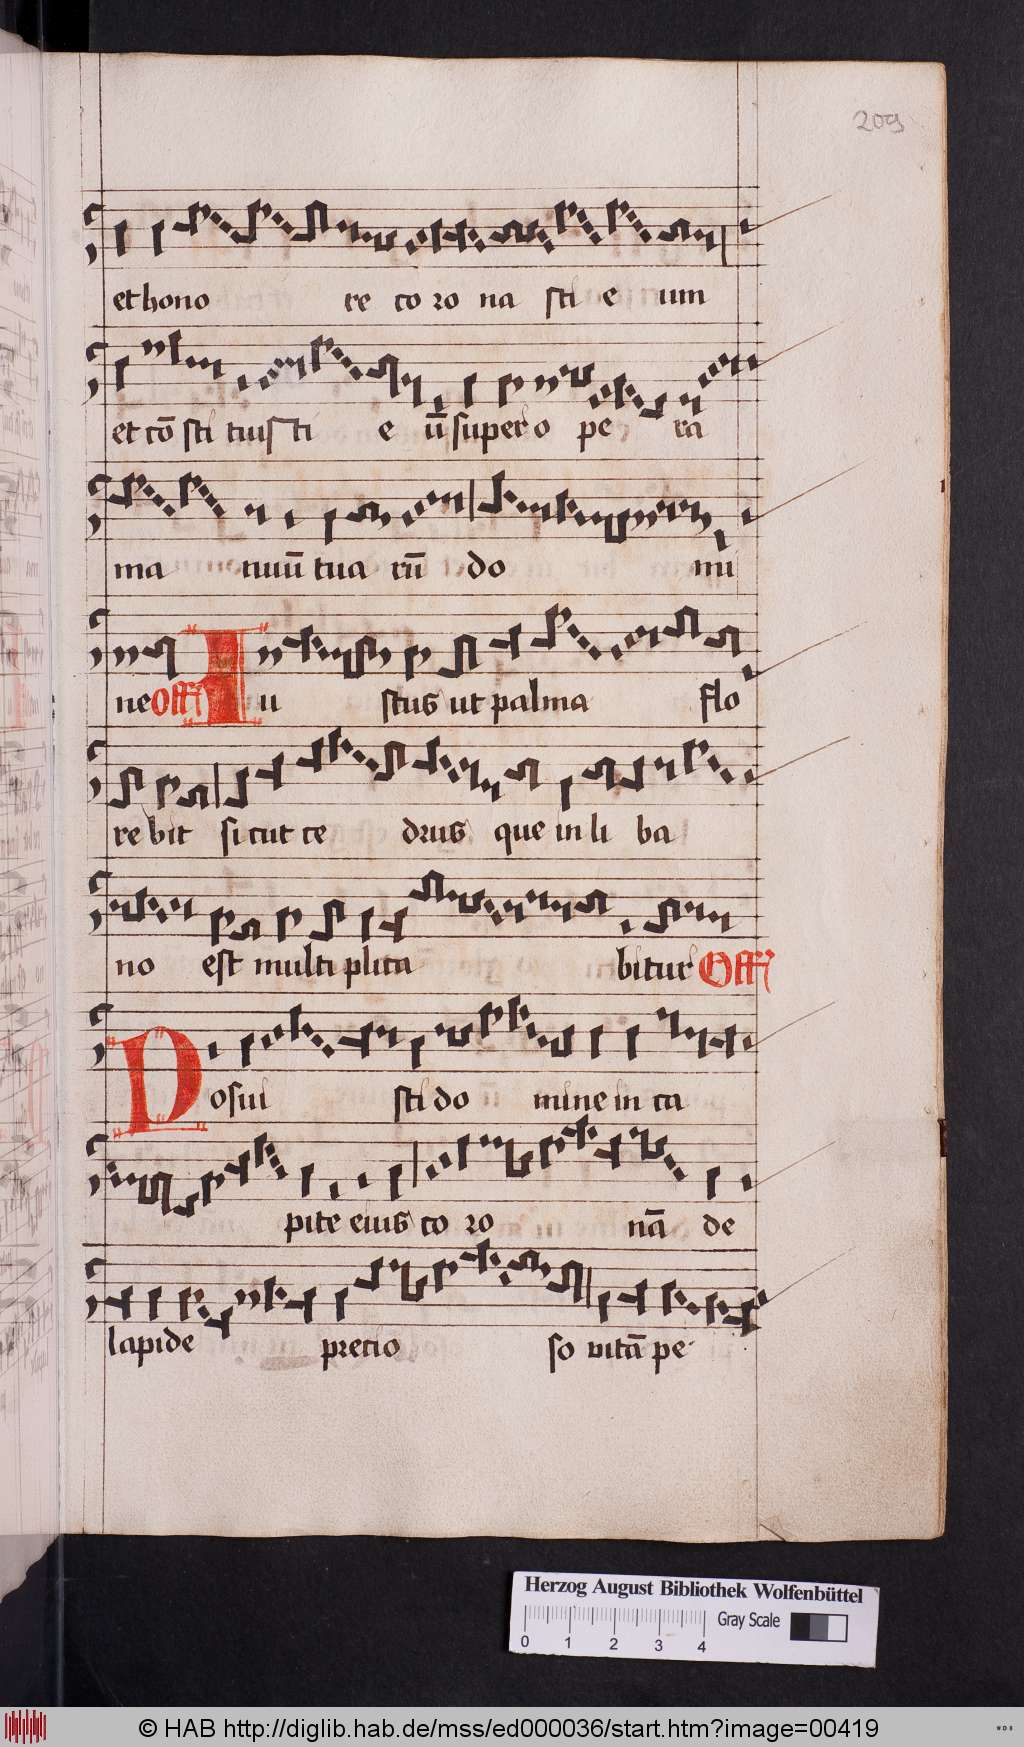 209
et hono re co ro na sti e um
et cō sti tuis ti e ū super o pe ra
ma nuū tua rū do mi
ne Off Iu stus ut palma flo
re bit si cut ce drus que in li ba
no est multi plica bitur Off
Posui sti do mine in ca
pite eius co ro nā de
lapide precio so vitā pe
Herzog August Bibliothek Wolfenbüttel
Gray Scale
0 1 2 3 4
© HAB http://diglib.hab.de/mss/ed000036/start.htm?image=00419